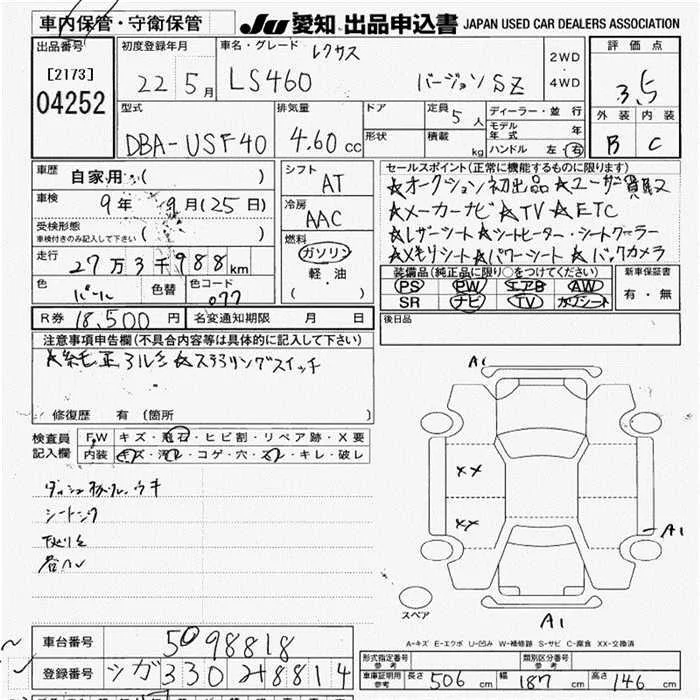 車内保管・守衛保管
JU 愛知 出品申込書 JAPAN USED CAR DEALERS ASSOCIATION
出品番号
[2173]
04252
初度登録年月
22 5月
車名・グレード レクサス
LS460 バージョン SZ
2WD
・
4WD
評価点
3.5
外装 内装
B C
型式
DBA-USF40
排気量
4.60 cc
ドア
形状
定員 5 人
積載 kg
ディーラー・並行
モデル年式 年
ハンドル 左・右
車歴 自家用 ( )
車検 9年 9月(25日)
受検形態
車検付きのみ記入して下さい ( )
走行 27万3千988km
色 パール 色替 色コード 077
シフト
AT
冷房
AAC
燃料
ガソリン
軽・油
( )
セールスポイント(正常に機能するものに限ります)
☆オークション初出品☆ユーザー買取
☆メーカーナビ☆TV☆ETC
☆レザーシート☆シートヒーター・シートクーラー
☆メモリシート☆パワーシート☆バックカメラ
装備品(純正品に限り○をつけてください)
PS PW エアB AW
SR ナビ TV カワシート
新車保証書
有・無
R券 18,500円 名変通知期限 月 日
後日品
注意事項申告欄(不具合内容等は具体的に記入して下さい)
☆ステアリングスイッチ
修復歴 有 (箇所 )
検査員記入欄
F.W キズ・飛石・ヒビ割・リペア跡・X要
内装 キズ・汚レ・コゲ・穴・スレ・キレ・破レ
A1
XX
XX
A1
A1
スペア
A-キズ E-エクボ U-凹み W-補修跡 S-サビ C-腐食 XX-交換済
車台番号 5098818
登録番号 シガ330 ソ8814
形式指定番号 参考
類別区分番号 参考
車庫証明用 参考 長さ 506 cm 幅 187 cm 高さ 146 cm